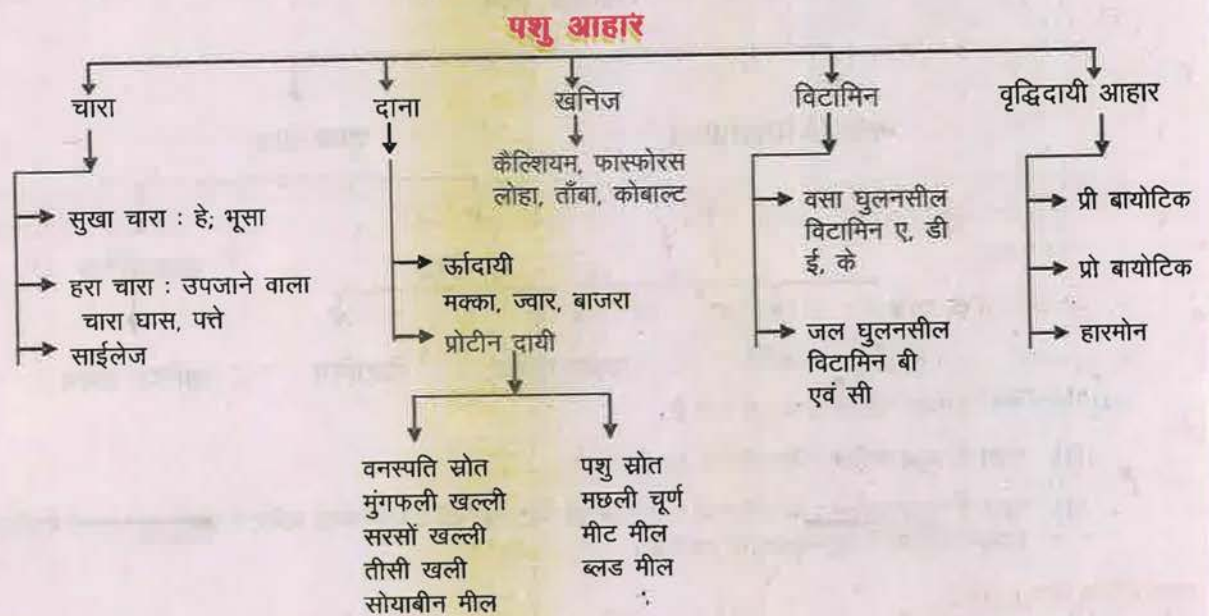 पशु आहार
चारा
दाना
खनिज
विटामिन
वृद्धिदायी आहार
सुखा चारा : हे; भूसा
हरा चारा : उपजाने वाला
चारा घास, पत्ते
साईलेज
र्ऊादायी
मक्का, ज्वार, बाजरा
प्रोटीन दायी
वनस्पति स्रोत
मुंगफली खल्ली
सरसों खल्ली
तीसी खली
सोयाबीन मील
पशु स्रोत
मछली चूर्ण
मीट मील
ब्लड मील
कैल्शियम, फास्फोरस
लोहा, ताँबा, कोबाल्ट
वसा घुलनसील
विटामिन ए, डी
ई, के
जल घुलनसील
विटामिन बी
एवं सी
प्री बायोटिक
प्रो बायोटिक
हारमोन